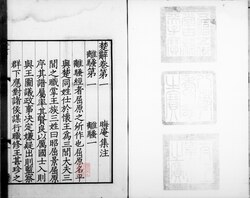 楚辭卷第一
晦庵集注
離騷經第一
離騷一
離騷經者屈原之所作也屈原名平
與楚同姓仕於懷王為三閭大夫三
閭之職掌王族三姓曰昭屈景屈原
序其譜屬率其賢良以厲國士入則
與王圖議政事決定嫌疑出則監察
群下應對諸侯謀行職修王甚珍之